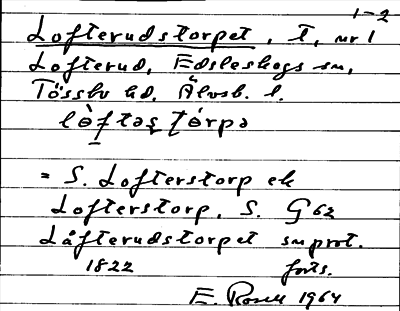 1-2
Lofterudstorpet, t, nr 1
Lofterud, Edsleskogs sn,
Tössbo hd, Älvsb. l.
lòftəş tórpə
= S. Lofterstorp ek
Lofterstorp, S. G 62
Låfterudstorpet snprot.
1822 forts.
E. Rosell 1964